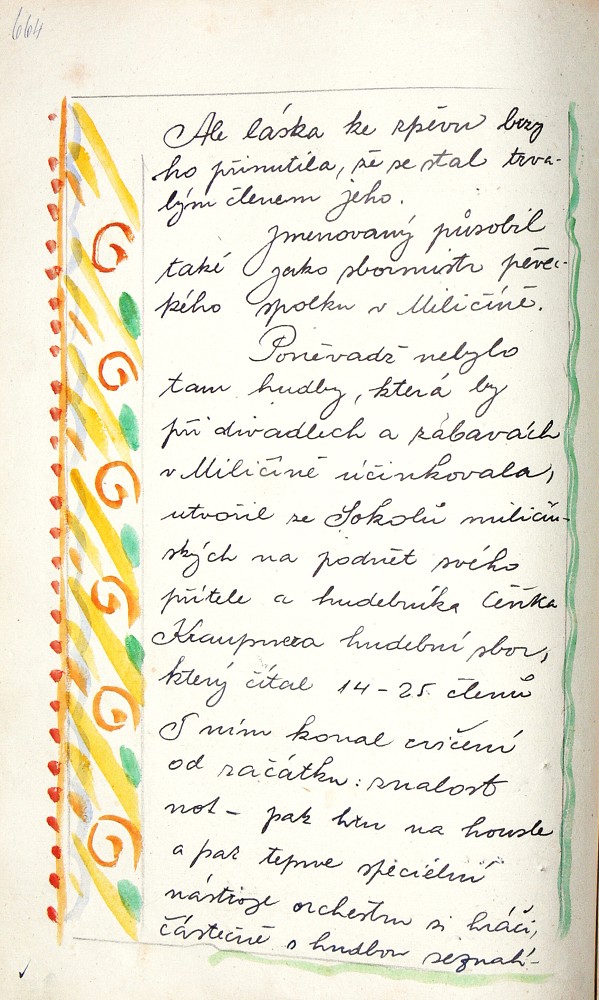 664
Ale láska ke zpěvu brzy
ho přinutila, že se stal trva-
lým členem jeho.
Jmenovaný působil
také jako sbormistr pěvec-
kého spolku v Miličíně.
Poněvadž nebylo
tam hudby, která by
při divadlech a zábavách
v Miličíně účinkovala,
utvořil ze Sokolů miličín-
ských na podnět svého
přítele a hudebníka Čeňka
Kraupnera hudební sbor,
který čítal 14-25 členů
S ním konal cvičení
od začátku: znalost
not - pak hru na housle
a pak teprve speciélní
nástroje orchestru si hráči,
částečně s hudbou seznalí-